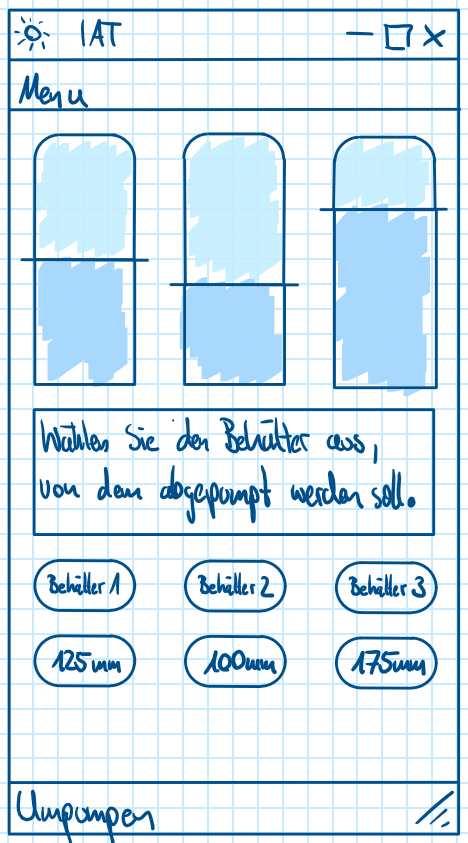 IAT
Menu
Wählen Sie den Behälter aus,
von dem abgepumpt werden soll.
Behälter 1 Behälter 2 Behälter 3
125mm 100mm 175mm
Umpumpen